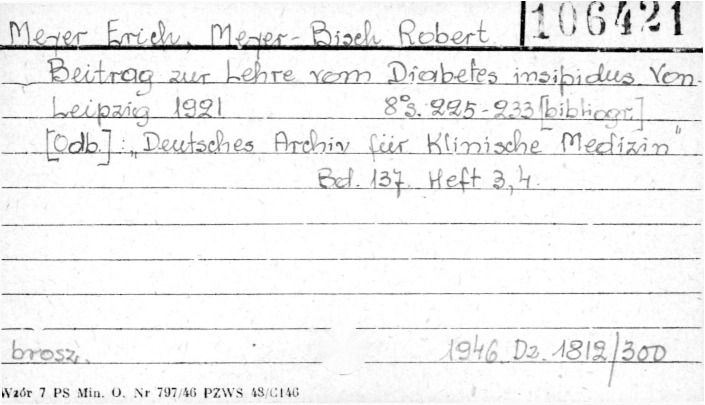 106421
Meyer Erich, Meyer-Bisch Robert
Beitrag zur Lehre vom Diabetes insipidus. Von
Leipzig 1921 8°s. 225-233 [bibliogr.]
[Odb.]: „Deutsches Archiv für Klinische Medizin"
Bd. 137. Heft 3,4.
brosz. 1946 Dz. 1812/300
Wzór 7 PS Min. O. Nr 797/46 PZWS 48/C146